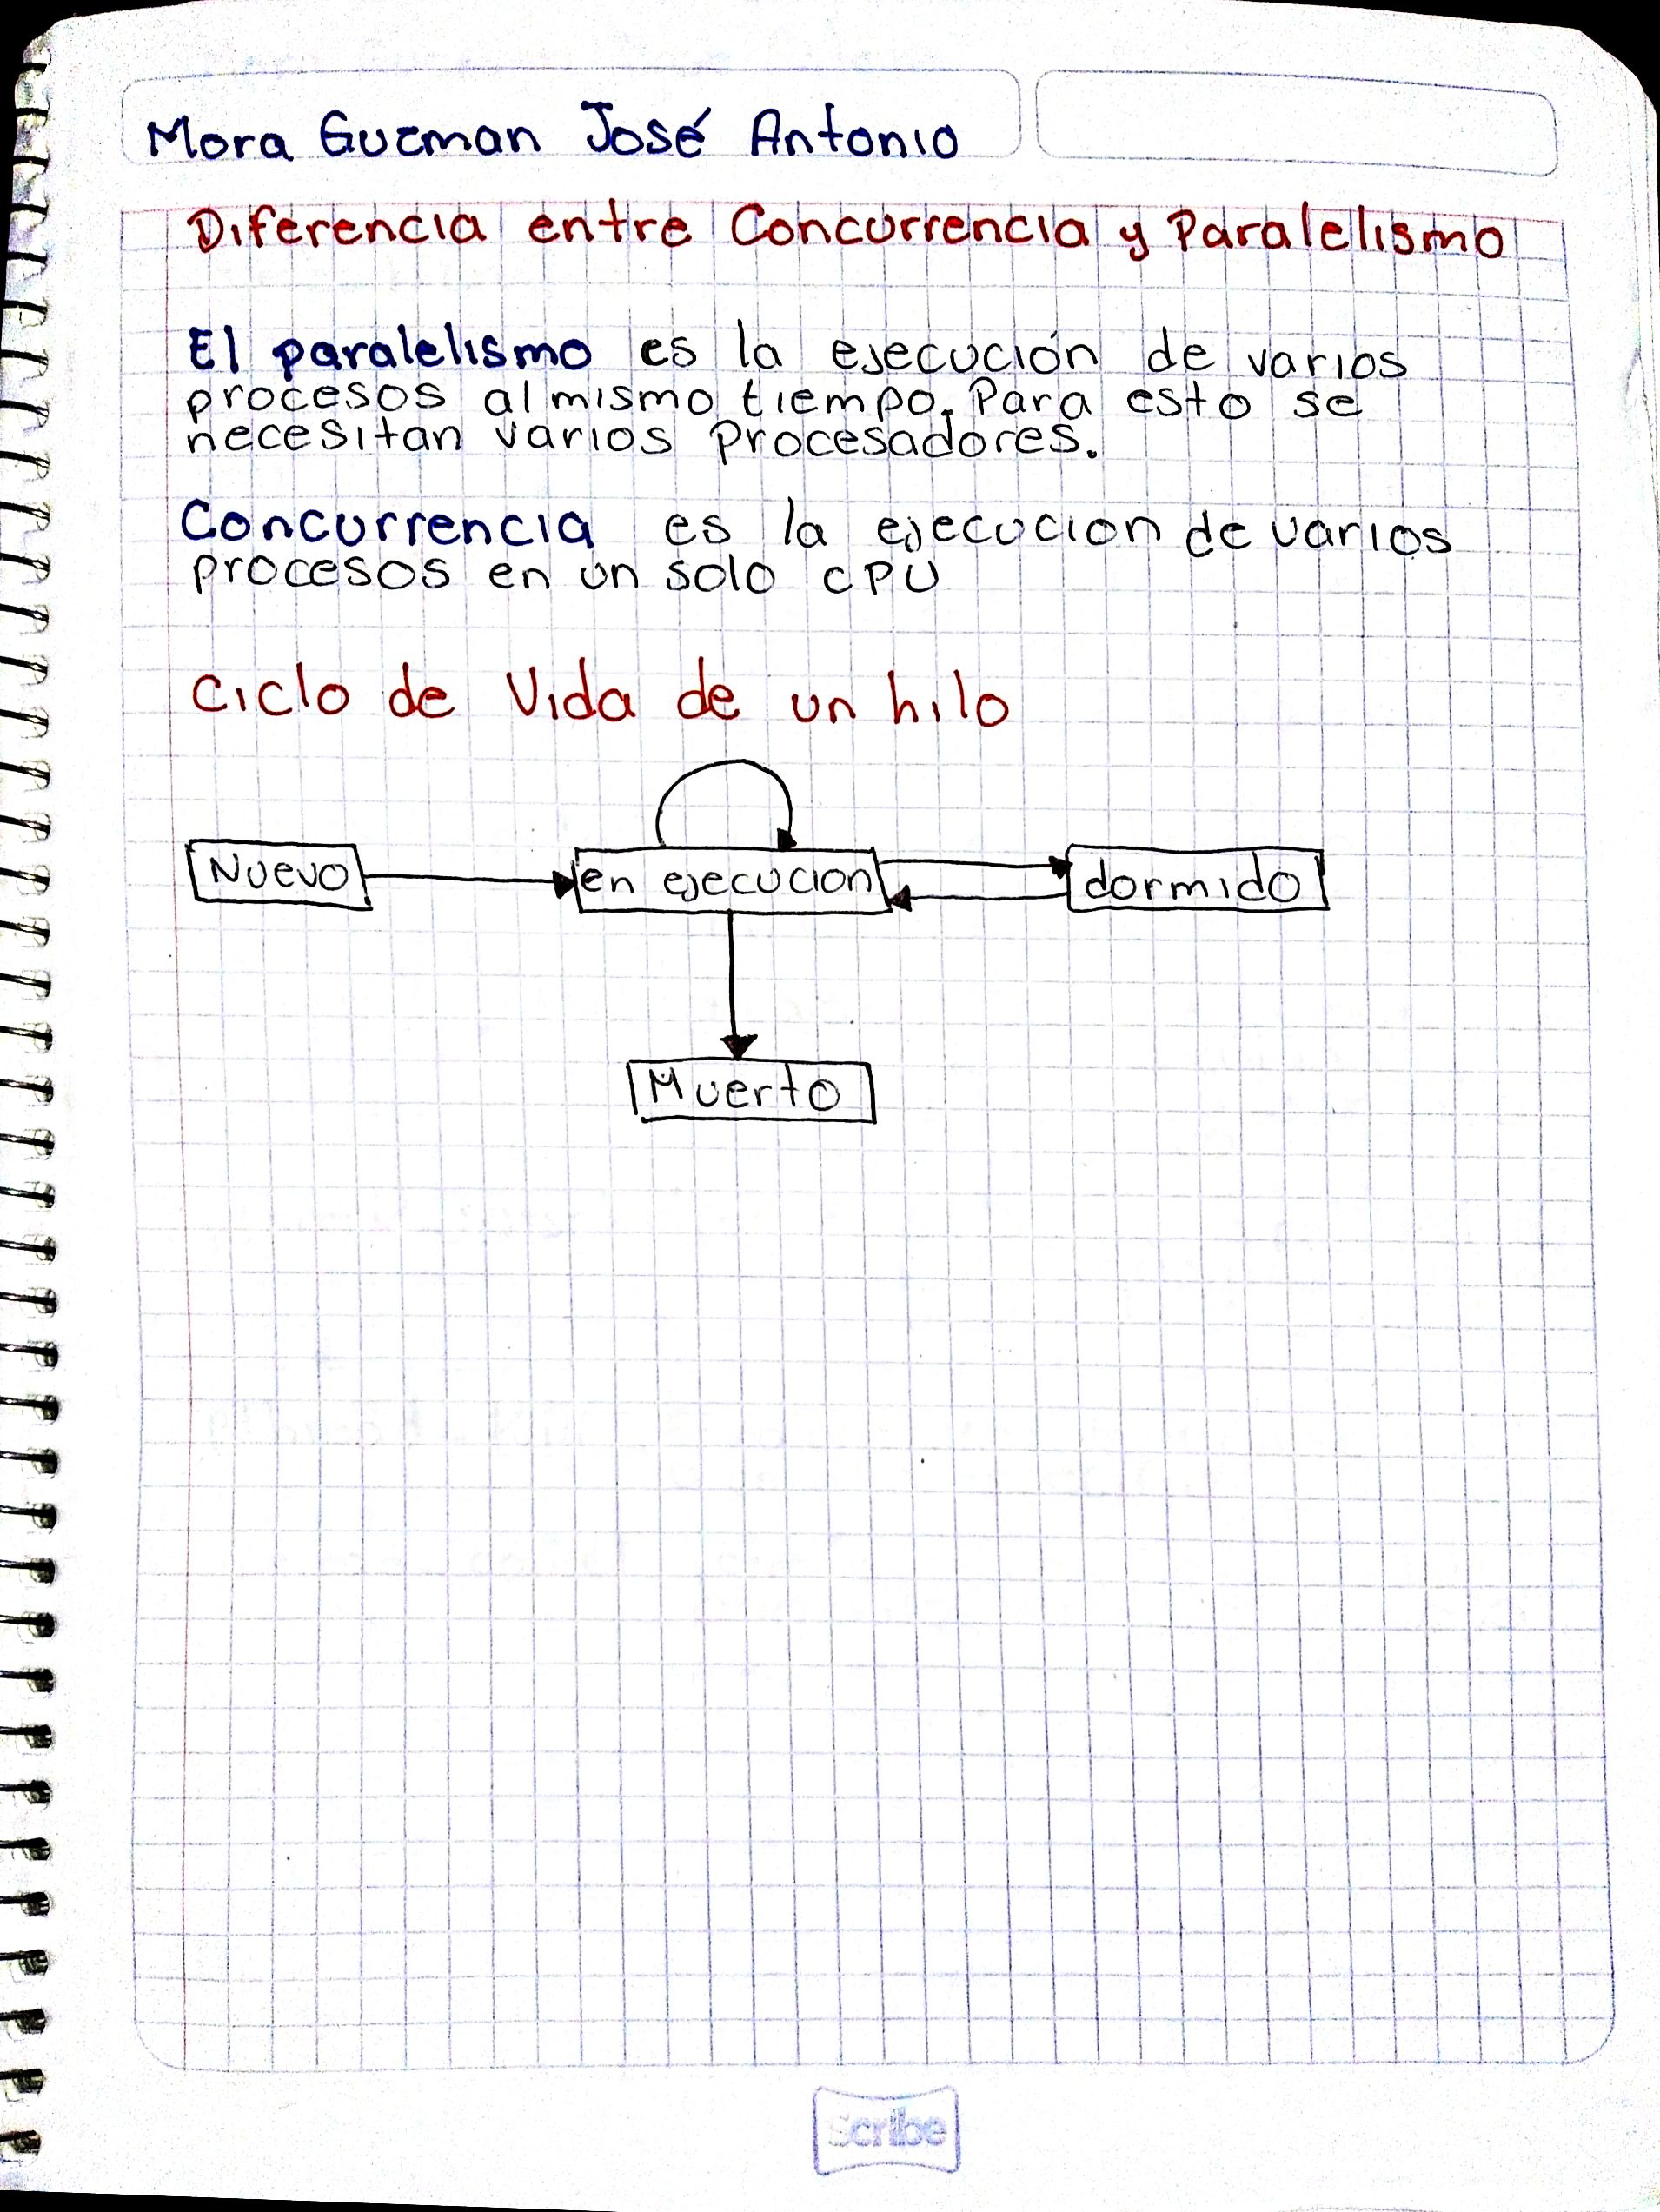 Mora Guzman José Antonio
Diferencia entre Concurrencia y Paralelismo
El paralelismo es la ejecución de varios
procesos al mismo tiempo. Para esto se
necesitan varios Procesadores.
Concurrencia es la ejecucion de varios
procesos en un solo CPU
Ciclo de Vida de un hilo
Nuevo en ejecucion dormido
Muerto
Scribe